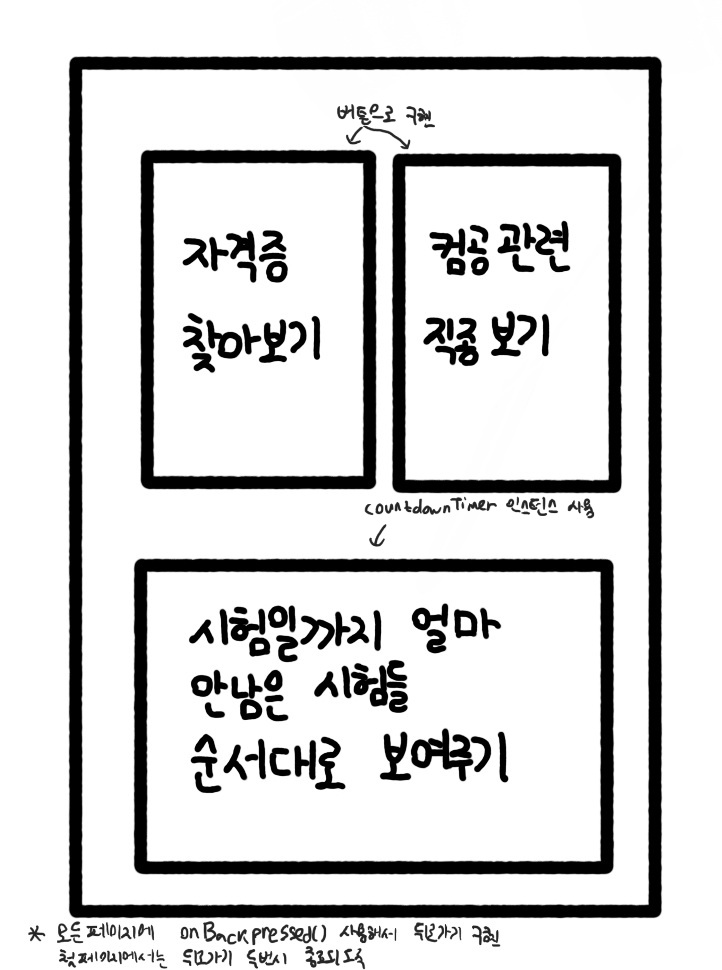 버튼으로 구현
자격증
찾아보기
컴공 관련
직종 보기
countdownTimer 인스턴스 사용
시험일까지 얼마
안남은 시험들
순서대로 보여주기
* 모든 페이지에 onBackpressed() 사용해서 뒤로가기 구현
첫 페이지에서는 뒤로가기 두번시 종료되도록